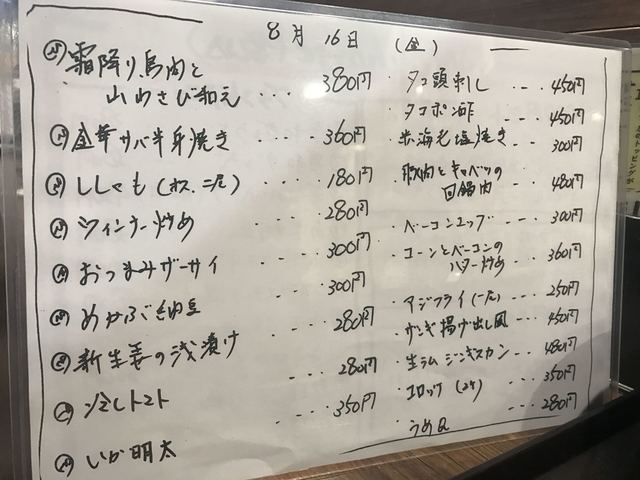 8月16日 (金)
霜降り鳥肉と
山わさび和え ... 380円
金華サバ半身焼き .... 360円
ししゃも (オス、二尾) .... 180円
ウィンナー炒め .... 280円
おつまみザーサイ .... 300円
めかぶ納豆 .... 300円
新生姜の浅漬け ... 280円
冷しトマト ... 280円
いか明太 ... 350円
タコ頭刺し ... 450円
タコポン酢 ... 450円
赤海老塩焼き ... 300円
豚肉とキャベツの
回鍋肉 ... 480円
ベーコンエッグ ... 300円
コーンとベーコンの
バター炒め ... 360円
アジフライ (一尾) ... 250円
ザンギ揚げ出し風 ... 450円
生ラムジンギスカン ... 480円
コロッケ (2ケ) ... 350円
... 280円